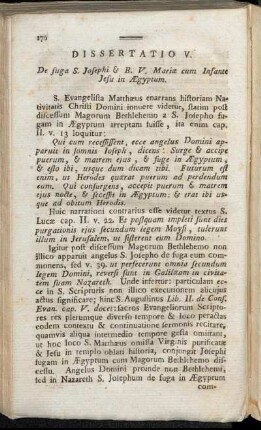 176
DISSERTATIO V.
De fuga S. Josephi & B. V. Mariæ cum Infante
Jesu in Ægyptum.
S. Evangelista Matthæus enarrans historiam Na-
tivitatis Christi Domini innuere videtur, statim post
discessum Magorum Bethlehemo a S. Josepho fu-
gam in Ægyptum arreptam fuisse, ita enim cap.
II. v. 13 loquitur:
Qui cum recessissent, ecce angelus Domini ap-
paruit in somnis Joseph, dicens: Surge & accipe
puerum, & matrem ejus, & fuge in Ægyptum,
& esto ibi, usque dum dicam tibi. Futurum est
enim, ut Herodes quærat puerum ad perdendum
eum. Qui consurgens, accepit puerum & matrem
ejus nocte, & secessit in Ægyptum: & erat ibi us-
que ad obitum Herodis.
Huic narrationi contrarius esse videtur textus S.
Lucæ cap. II. v. 22. Et postquam impleti sunt dies
purgationis ejus secundum legem Moysi, tulerunt
illum in Jerusalem, ut sisterent eum Domino.
Igitur post discessum Magorum Bethlehemo non
illico apparuit angelus S. Josepho de fuga eum com-
monens, sed v. 39. ut perfecerunt omnia secundum
legem Domini, reversi sunt in Galilæam in civita-
tem suam Nazareth. Unde infertur: particulam ec-
ce in S. Scripturis non illico executionem alicujus
actus significare; hinc S. Augustinus Lib. II. de Cons.
Evan. cap. V. docet: sacros Evangeliorum Scripto-
res res plerumque diverso tempore & loco peractas
eodem contextu & continuatione sermonis recitare,
quamvis aliqua intermedio tempore gesta omittant,
in hoc loco S. Matthæus omissa Virginis purificatione
& Jesu in templo oblati historia, conjungit Josephi
fugam in Ægyptum cum Magorum Bethlehemo dis-
cessu. Angelus Domini proinde non Bethlehemi,
sed in Nazareth S. Josephum de fuga in Ægyptum
com-